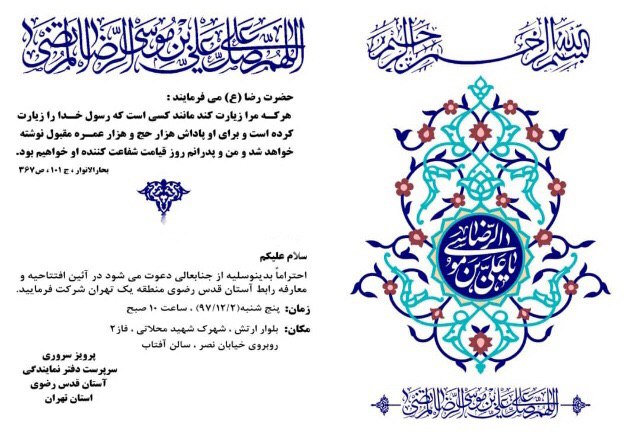 بسم الله الرحمن الرحیم
یا علی بن موسی الرضا
اللهم صل علی علی بن موسی الرضا المرتضی
اللهم صل علی علی بن موسی الرضا المرتضی
حضرت رضا (ع) می فرمایند :
هرکـه مـرا زیارت کند مانند کسی است که رسول خـدا را زیارت
کرده است و برای او پاداش هزار حج و هزار عمـره مقبول نوشته
خواهد شد و من و پدرانم روز قیامت شفاعت کننده او خواهیم بود.
بحارالانوار ، ج ۱۰۱ ، ص ۳۶۷
سلام علیکم
احتراماً بدینوسیله از جنابعالی دعوت می شود در آئین افتتاحیه و
معارفه رابط آستان قدس رضوی منطقه یک تهران شرکت فرمایید.
زمان: پنج شنبه(۹۷/۱۲/۲) ، ساعت ۱۰ صبح
مکان: بلوار ارتش ، شهرک شهید محلاتی ، فاز۲
روبروی خیابان نصر ، سالن آفتاب
پرویز سروری
سرپرست دفتر نمایندگی
آستان قدس رضوی
استان تهران